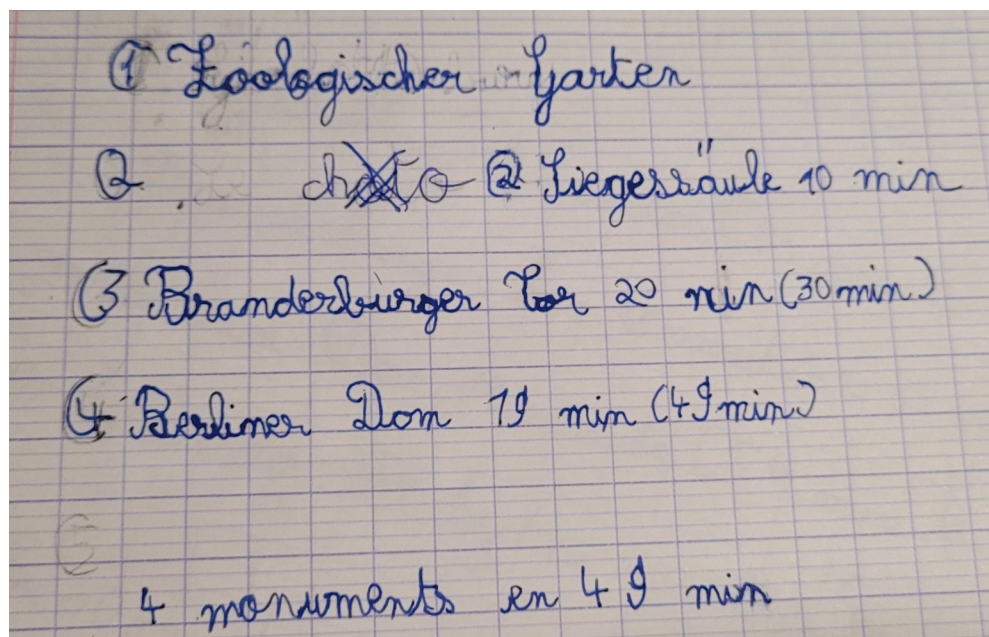 ① Zoologischer Garten
2 ② Siegessäule 10 min
③ Branderburger Tor 20 min (30 min)
④ Berliner Dom 19 min (49 min)
5
4 monuments en 49 min